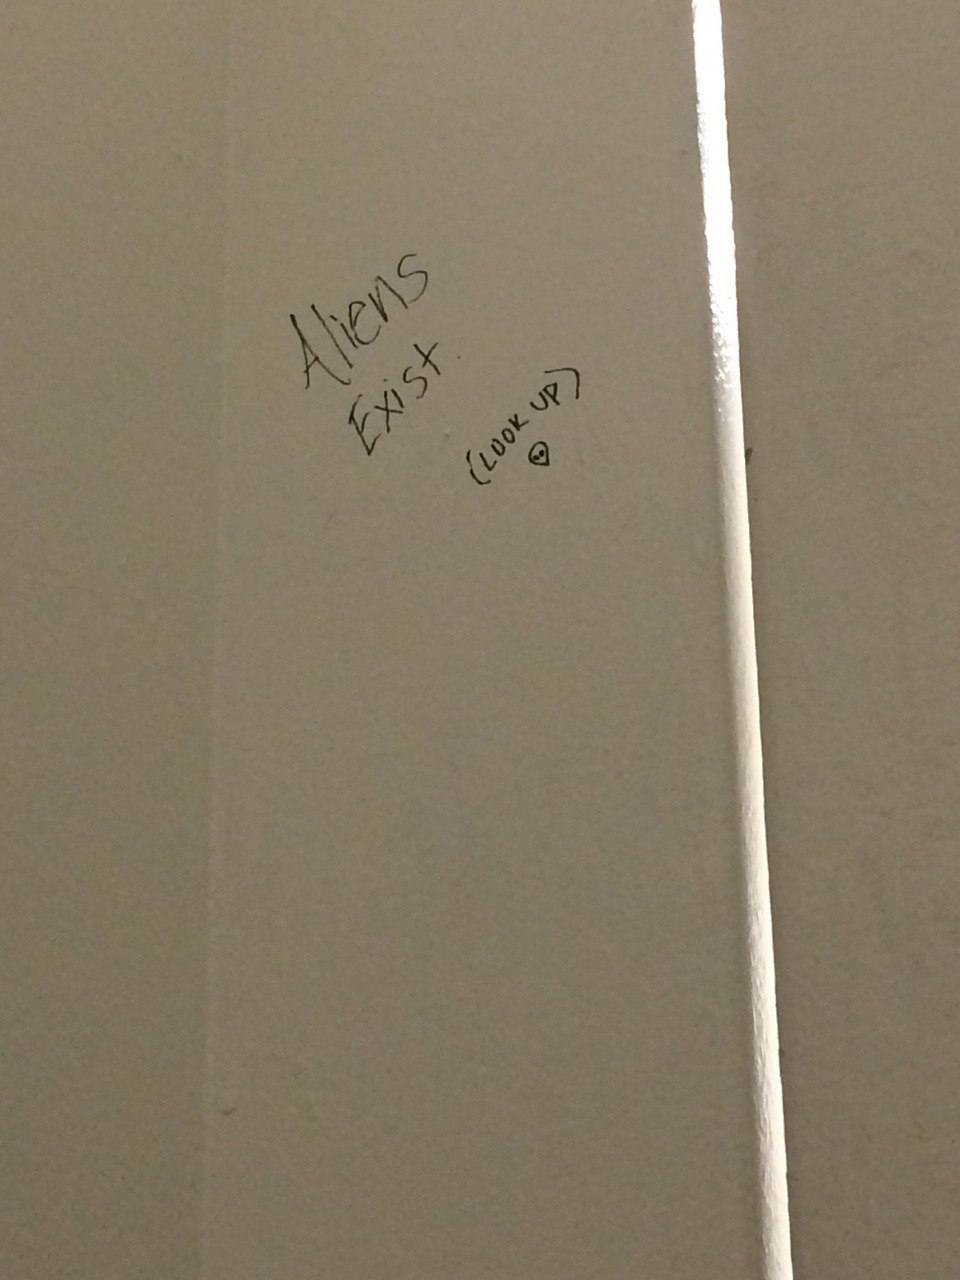 Aliens
Exist
(LOOK UP)